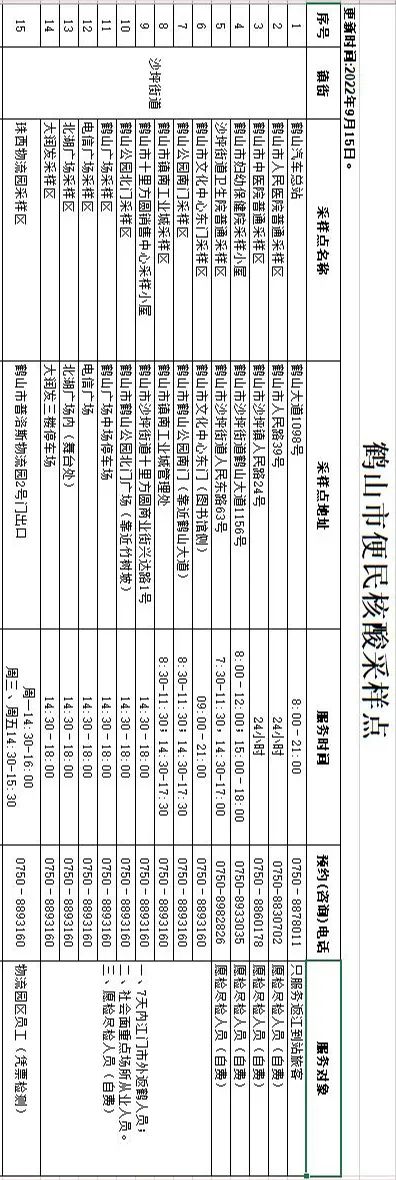 鹤山市便民核酸采样点
更新时间:2022年9月15日。
序号 镇街 采样点名称 采样点地址 服务时间 预约(咨询)电话 服务对象
1 鹤山汽车总站 鹤山大道1098号 8:00-21:00 0750-8878011 只服务返江到站旅客
2 鹤山市人民医院普通采样区 鹤山市人民路39号 24小时 0750-8830702 愿检尽检人员(自费)
3 鹤山市中医院普通采样区 鹤山市沙坪镇人民路24号 24小时 0750-8860178 愿检尽检人员(自费)
4 鹤山市妇幼保健院采样小屋 鹤山市沙坪街道鹤山大道1156号 8:00-12:00;15:00-18:00 0750-8933035 愿检尽检人员(自费)
5 沙坪街道卫生院普通采样区 鹤山市沙坪街道人民东路63号 7:30-11:30,14:30-17:00 0750-8982826 愿检尽检人员(自费)
6 鹤山市文化中心东门采样区 鹤山市文化中心东门(图书馆侧) 09:00-21:00 0750-8893160
7 鹤山公园南门采样区 鹤山市鹤山公园南门(靠近鹤山大道) 8:30-11:30;14:30-17:30 0750-8893160
沙坪街道
8 鹤山市镇南工业城采样区 鹤山市镇南工业城管理处 8:30-11:30;14:30-17:30 0750-8893160
9 鹤山市十里方圆销售中心采样小屋 鹤山市沙坪街道十里方圆商业街兴达路1号 14:30-18:00 0750-8893160
10 鹤山公园北门采样区 鹤山市鹤山公园北门广场(靠近竹树坡) 14:30-18:00 0750-8893160
11 鹤山广场采样区 鹤山广场中场停车场 14:30-18:00 0750-8893160
12 电信广场采样区 电信广场 14:30-18:00 0750-8893160
13 北湖广场采样区 北湖广场内(舞台处) 14:30-18:00 0750-8893160
14 大润发采样区 大润发三楼停车场 14:30-18:00 0750-8893160
一、7天内江门市外返鹤人员;
二、社会面重点场所从业人员。
三、愿检尽检人员(自费)
15 珠西物流园采样区 鹤山市普洛斯物流园2号门出口 周一14:30-16:00
周三、周五14:30-15:30 0750-8893160 物流园区员工(凭票检测)